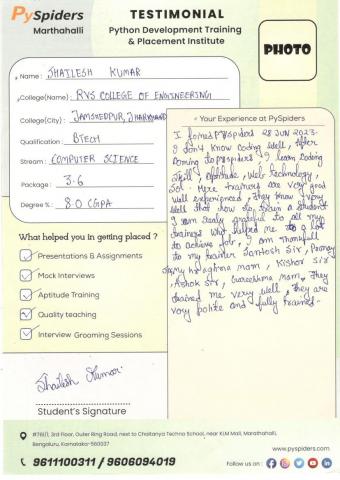 PySpiders
Marthahalli
TESTIMONIAL
Python Development Training
& Placement Institute
PHOTO
Name : SHAILESH KUMAR
College(Name) : RVS COLLEGE OF ENGINEERING
College(City) : JAMSHEDPUR, JHARKHAND
Qualification : BTECH
Stream : COMPUTER SCIENCE
Package : 3.6
Degree % : 8.0 CGPA
What helped you in getting placed ?
Presentations & Assignments
Mock Interviews
Aptitude Training
Quality teaching
Interview Grooming Sessions
Shailesh Kumar
Student's Signature
Your Experience at PySpiders
I joined pyspiders 28 JUN 2023.
I don't know coding well, After
coming to pyspiders, I learn coding
skill, Aptitude, Web Technology,
Sql. Here trainers are very good
well experienced, they know very
well that how to train a student
I am really grateful to all my
trainers who helped me a lot
to achieve job, I am thankful
to my trainer Santosh Sir,
mam, Kishor Sir
, Ashok Sir, mam, They
trained me very well, they are
very polite and fully trained.
#761/1, 3rd Floor, Outer Ring Road, next to Chaitanya Techno School, near KLM Mall, Marathahalli,
Bengaluru, Karnataka-560037
9611100311 / 9606094019
www.pyspiders.com
Follow us on :